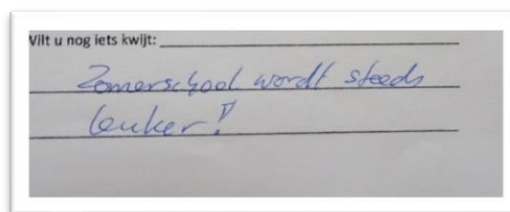 Wilt u nog iets kwijt:
Zomerschool wordt steeds
leuker!